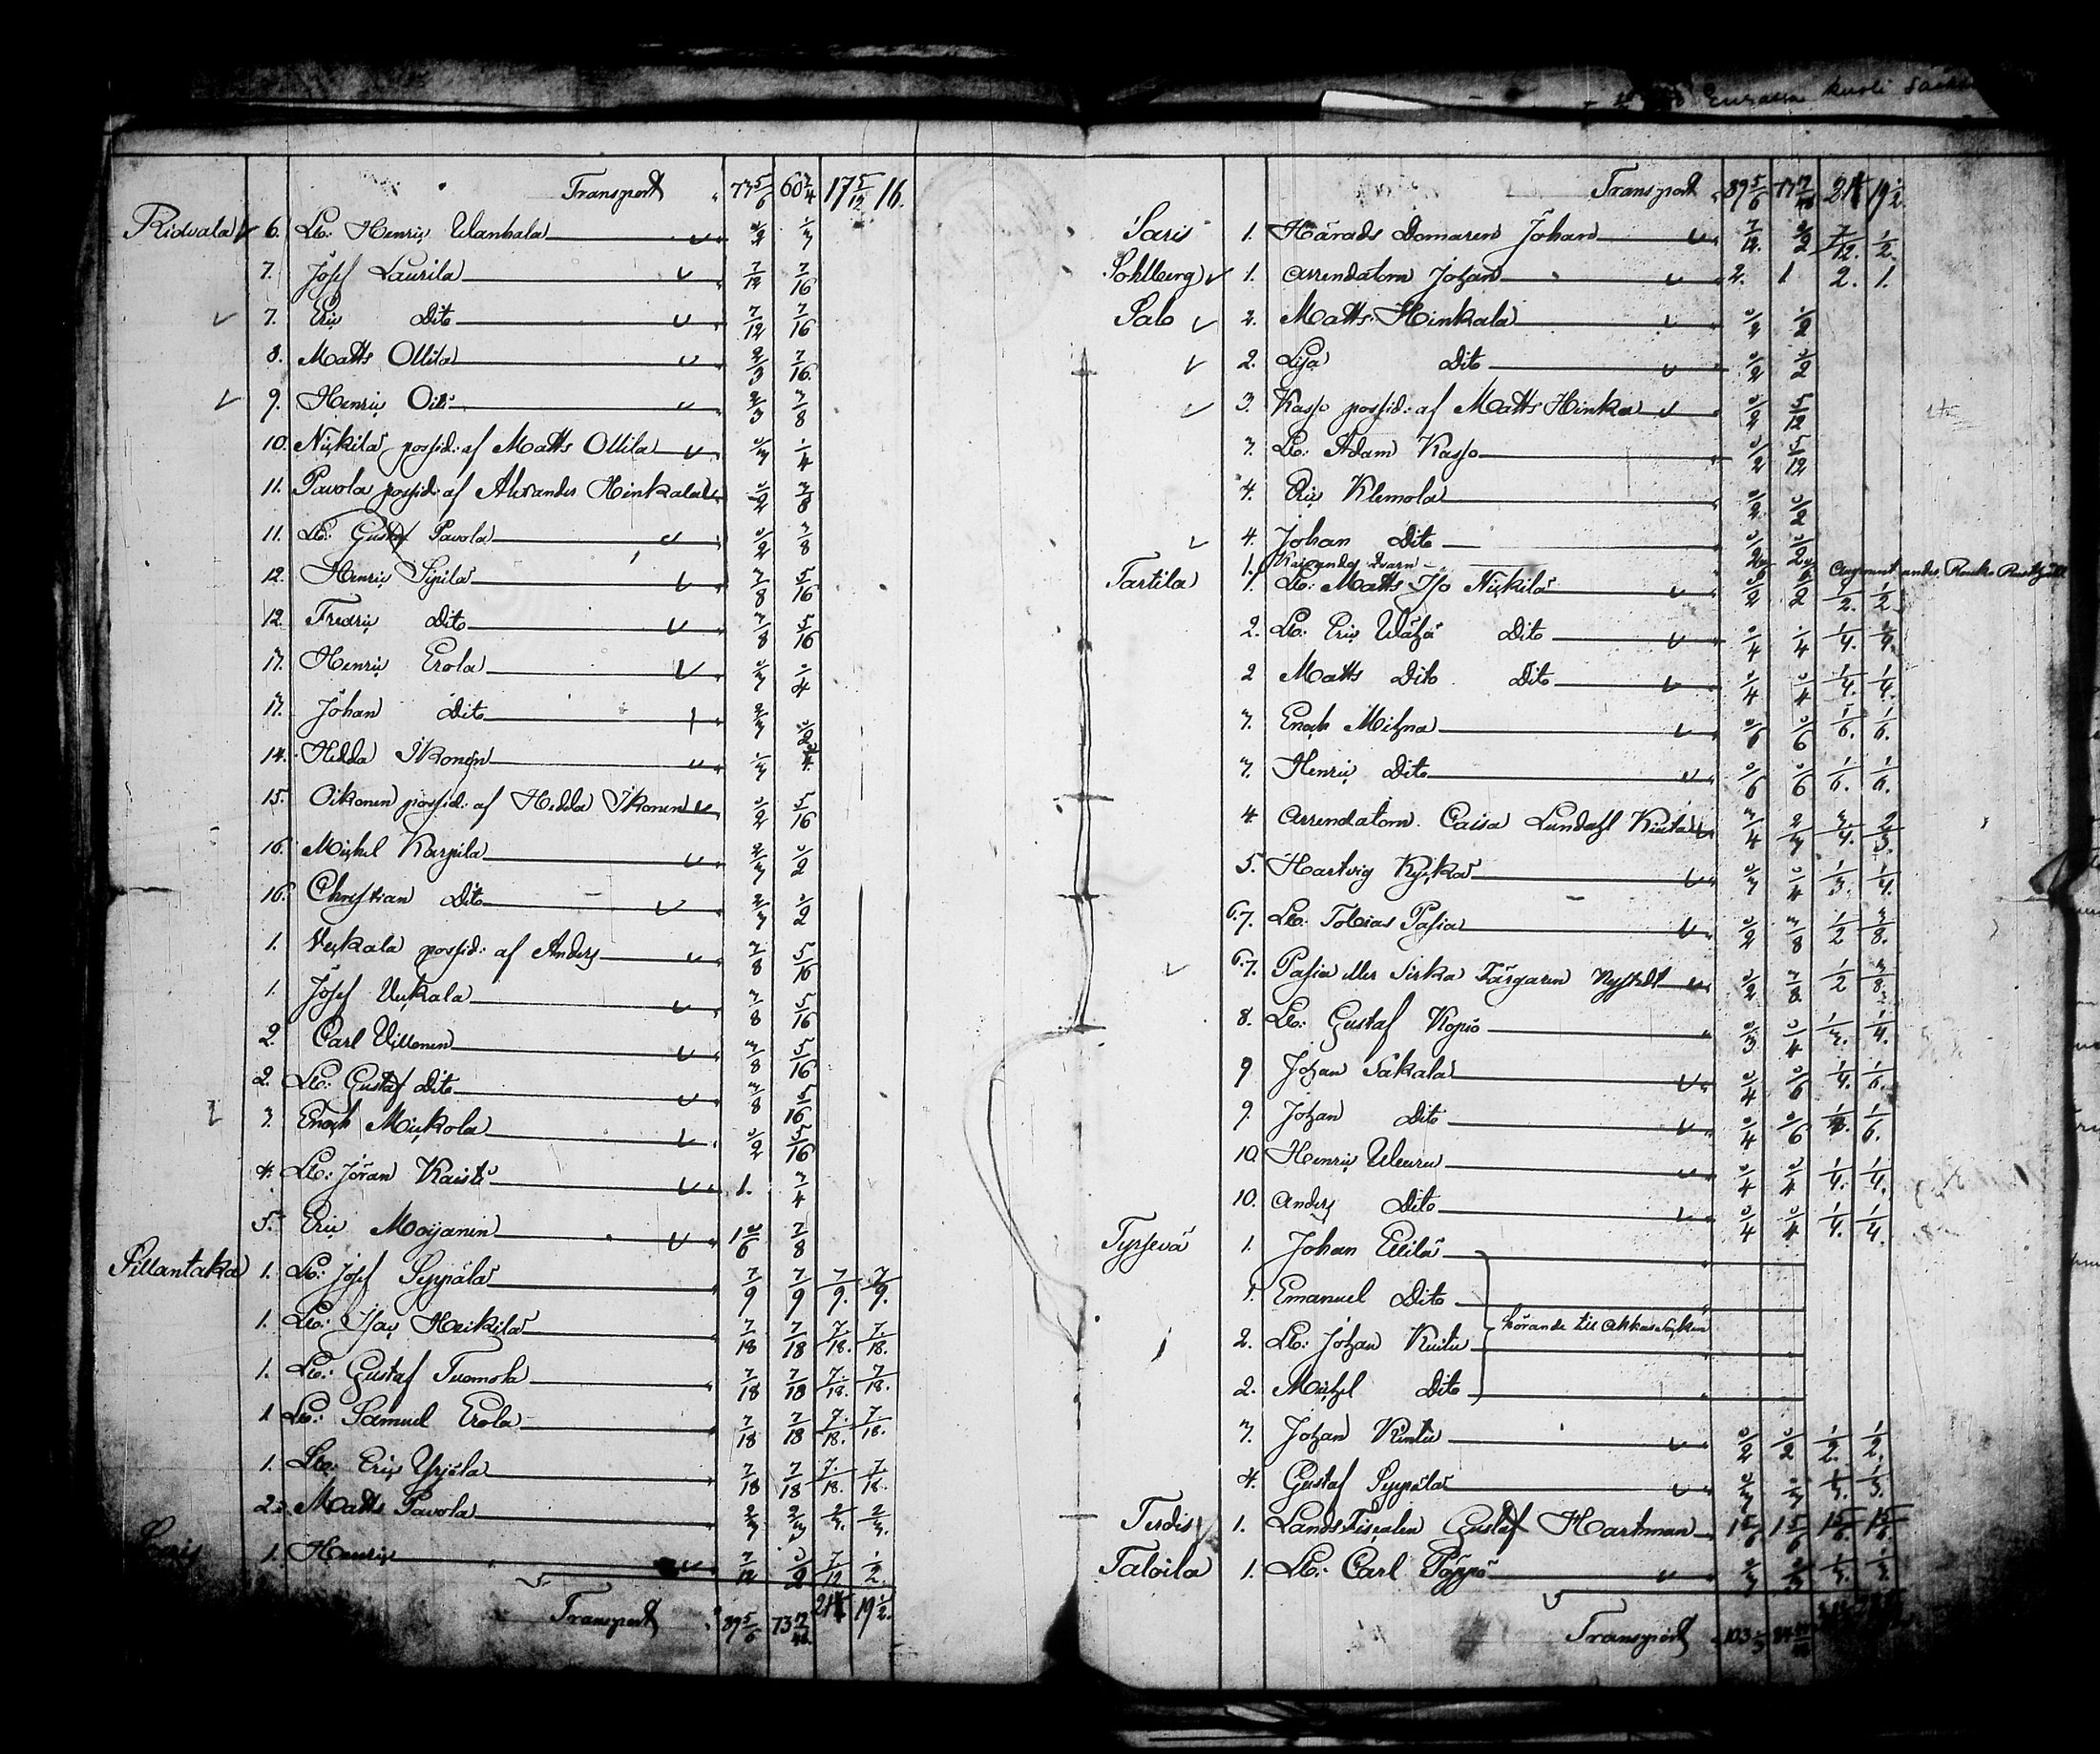 Transport 77 5/6 60 3/4 17 5/12 16.
Ridvala 6. Lb: Henric Wanhala 1/2 1/3
7. Josef Laurila 7/12 7/16
7. Eric Dito 7/12 7/16
8. Matts Ollila 2/3 7/16
9. Henric Oiti 2/3 3/8
10. Nickilä possid: af Matts Ollila 1/3 1/4
11. Pavola possid: af Alexander Hinkala 1/2 3/8
11. Lb: Gustaf Pavola 1/2 3/8
12. Henric Sipila 3/8 5/16
12. Fredric Dito 3/8 5/16
13. Henric Erola 1/3 1/4
13. Johan Dito 2/3 1/2
14. Hedda Ikonen 1/3 1/4
15. Oikonen possid: af Hedda Ikonen 1/2 5/16
16. Michel Karpila 2/3 1/2
16. Christian Dito 2/3 1/2
1. Uckala possid: af Anders 3/8 5/16
1. Josef Uckala 3/8 5/16
2. Carl Uillonen 3/8 5/16
2. Lb: Gustaf Dito 3/8 5/16
3. Enoch Mickola 1/2 5/16
4. Lb: Jöran Kaisti 1. 3/4
5. Eric Moijanin 1 1/6 7/8
Sillantaka 1. Lb: Josef Syppälä 7/9 7/9 7/9. 7/9.
1. Lb: Isac Heikilä 7/18 7/18 7/18. 7/18.
1. Lb: Gustaf Tuomola 7/18 7/18 7/18. 7/18.
1 Lb: Samuel Erola 7/18 7/18 7/18. 7/18.
1. Lb: Eric Yrjölä 7/18 7/18 7/18. 7/18.
2. Matts Pavola 2/3 2/3 2/3. 2/3.
Saris 1. Henric 7/12 1/2 7/12 1/2.
Transport 89 5/6 19 1/2.
Transport 89 5/6 19 1/2
Saris 1. Härads Domaren Johan 7/12. 1/2 7/12. 1/2.
Sohlberg 1. Arrendatorn Johan 2. 1 2. 1.
Salo 2. Matts Hinkala 1/2 1/2
2. Lisa Dito 1/2 1/2
3. Kasso possid: af Matts Hinka 1/2 5/12
3. Lb: Adam Kasso 1/2 5/12
4. Eric Klemola 1/2 1/2
4. Johan Dito 1/2 1/2
Augment under Rusthåll
Tartila 1. Lb: Matts Iso Nickilä 1/2 1/2 1/2. 1/2
2. Lb: Eric Wähä Dito 1/4 1/4 1/4. 1/4.
2 Matts Dito Dito 1/4 1/4 1/4. 1/4.
3. Enoch Mikna 1/6 1/6 1/6. 1/6.
3. Henric Dito 1/6 1/6 1/6. 1/6.
4. Arrendatorn Caisa Lundahl 3/4 2/3 3/4. 2/3.
5. Hartvig Kyckä 1/3 1/4 1/3. 1/4.
6.7. Lb: Tobias Pasia 1/2 3/8 1/2 3/8.
6.7. Pasia eller Sirka Färgaren Nystedt 1/2 3/8 1/2 3/8.
8. Lb: Gustaf Kopio 1/3 1/4 1/3. 1/4.
9 Johan Sakala 1/4 1/6 1/4. 1/6.
9. Johan Dito 1/4 1/6 1/4. 1/6.
10. Henric Weuru 1/4 1/4 1/4. 1/4.
10. Anders Dito 1/4 1/4 1/4. 1/4.
Tyrsevä 1. Johan Eeilä
1. Emanuel Dito
hörande till Akkas Socken
2. Lb: Johan Kuitu
2. Michel Dito
3. Johan 1/2 1/2 1/2. 1/2.
4. Gustaf Syppälä 1/3 1/3 1/3. 1/3.
Terdis 1. Lands Fiscalen Gustaf Hartman 1 5/6 1 5/6 1 5/6. 1 5/6.
Taloila 1. Lb: Carl Päppö 1/3 1/3 1/3. 1/3.
Transport 103 1/3